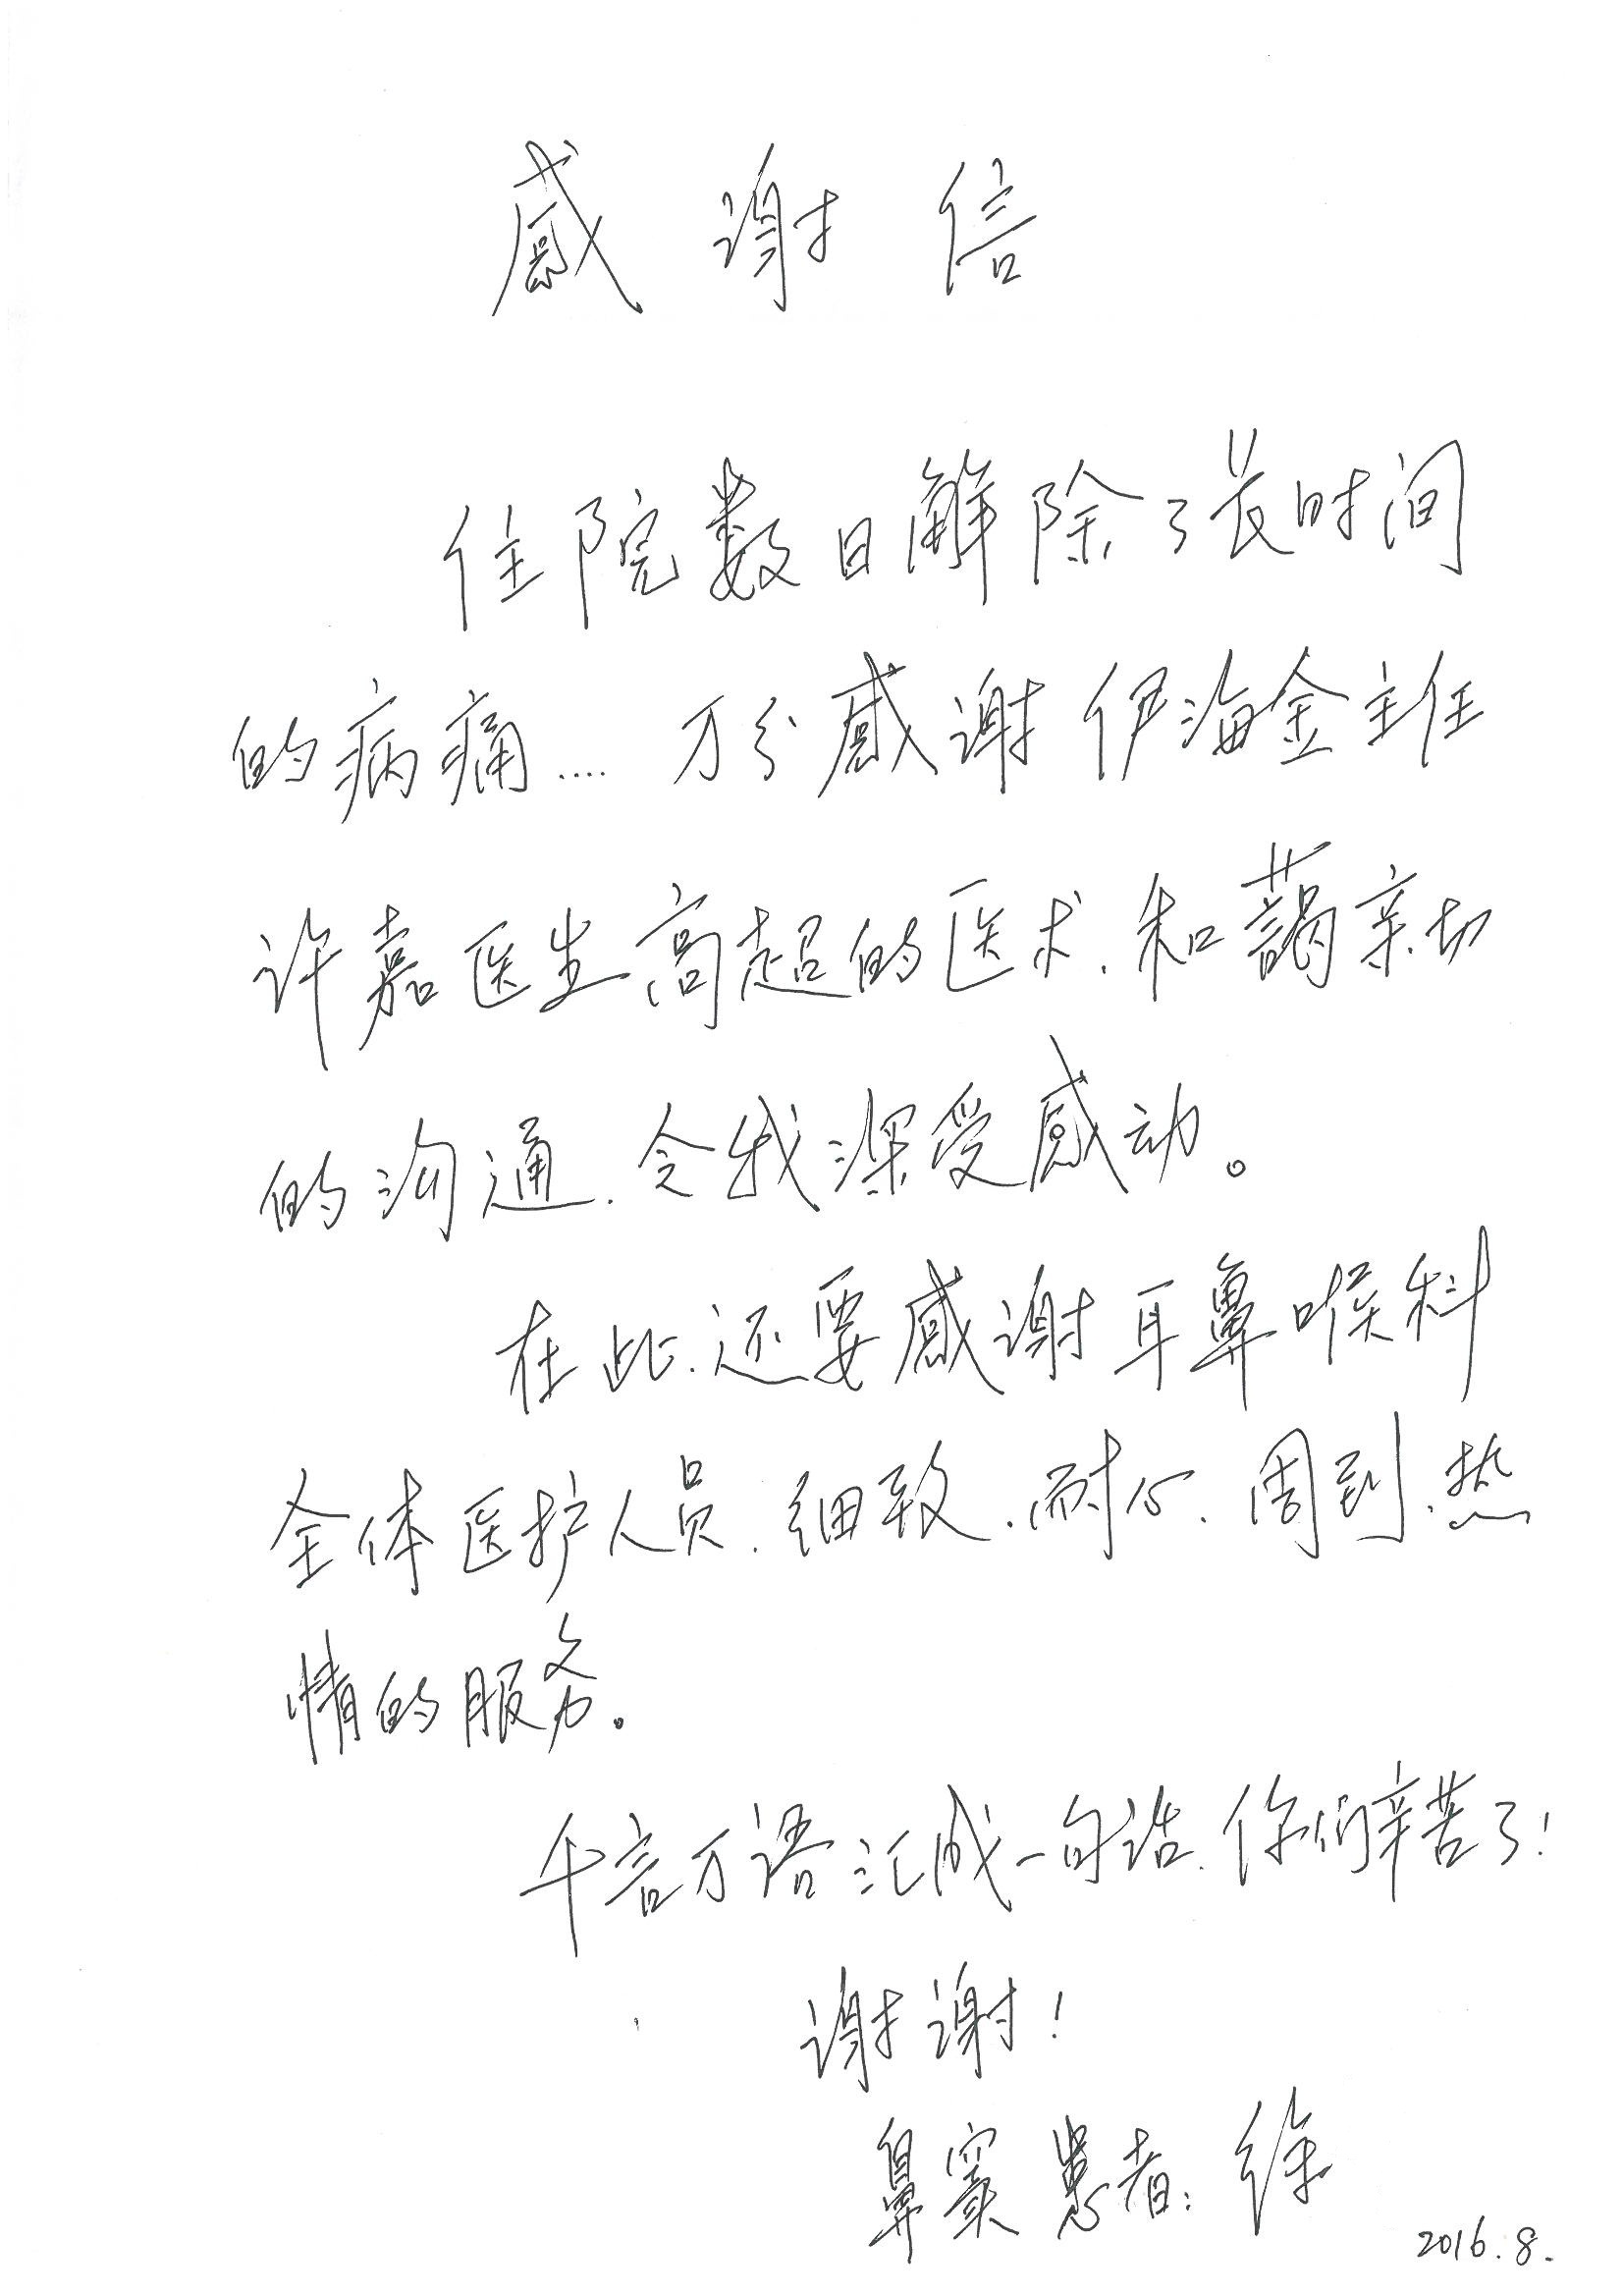 感谢信
住院数日解除了长时间
的病痛.... 万分感谢伊海金主任
许嘉医生高超的医术.和蔼亲切
的沟通.令我深受感动。
在此.还要感谢耳鼻喉科
全体医护人员.细致.耐心.周到.热
情的服务。
千言万语汇成一句话.你们辛苦了!
谢谢!
鼻窦患者:徐
2016.8.